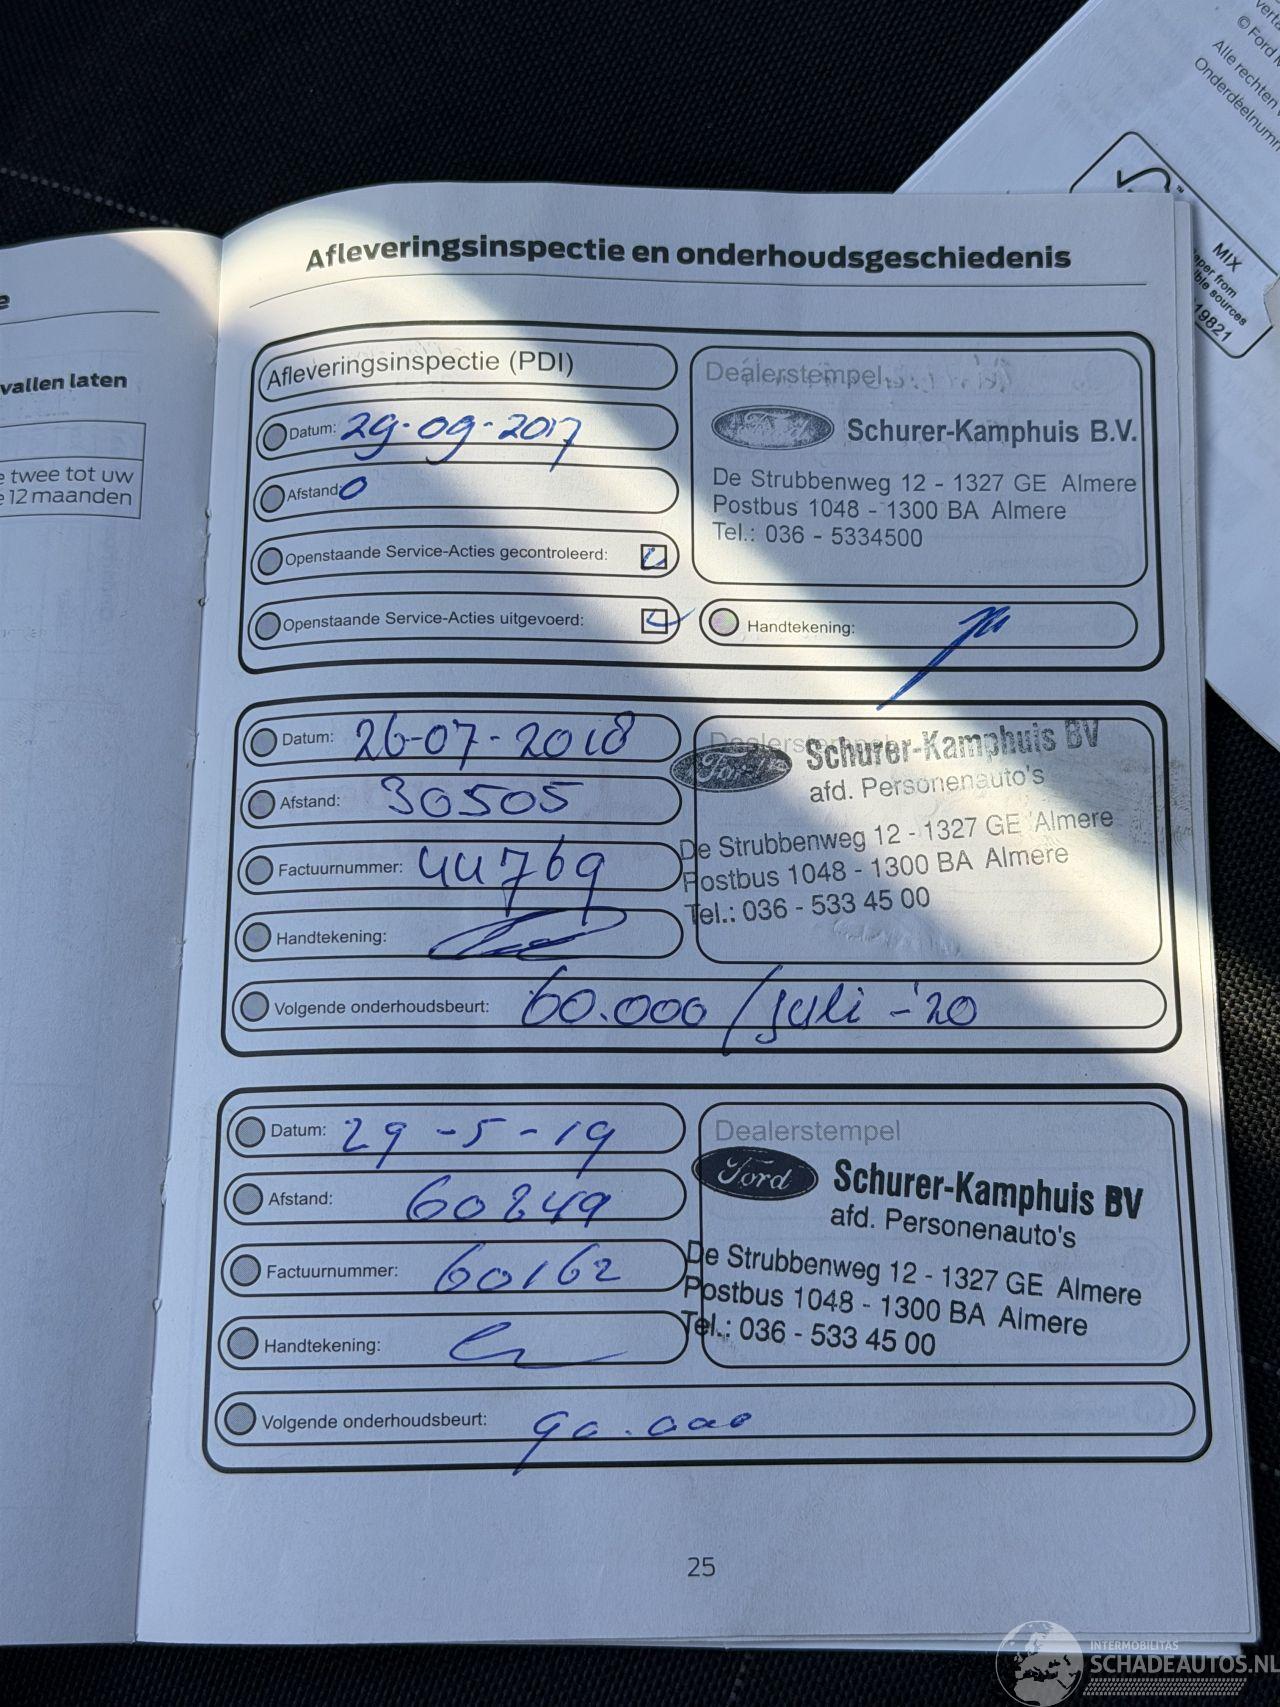 vallen laten
e twee tot uw
e 12 maanden
Afleveringsinspectie en onderhoudsgeschiedenis
Afleveringsinspectie (PDI)
Datum: 29-09-2017
Afstand: 0
Openstaande Service-Acties gecontroleerd:
Openstaande Service-Acties uitgevoerd:
Dealerstempel
Ford
Schurer-Kamphuis B.V.
De Strubbenweg 12 - 1327 GE Almere
Postbus 1048 - 1300 BA Almere
Tel.: 036 - 5334500
Handtekening:
Datum: 26-07-2018
Afstand: 30505
Factuurnummer: 44769
Handtekening:
Dealerstempel
Ford
Schurer-Kamphuis BV
afd. Personenauto's
De Strubbenweg 12 - 1327 GE Almere
Postbus 1048 - 1300 BA Almere
Tel.: 036 - 533 45 00
Volgende onderhoudsbeurt: 60.000 / juli - '20
Datum: 29-5-19
Afstand: 60249
Factuurnummer: 60162
Handtekening:
Dealerstempel
Ford
Schurer-Kamphuis BV
afd. Personenauto's
De Strubbenweg 12 - 1327 GE Almere
Postbus 1048 - 1300 BA Almere
Tel.: 036 - 533 45 00
Volgende onderhoudsbeurt: 90.000
25
© Ford
Alle rechten
Onderdeelnum
MIX
aper from
ble sources
19821
INTERMOBILITAS
SCHADEAUTOS.NL